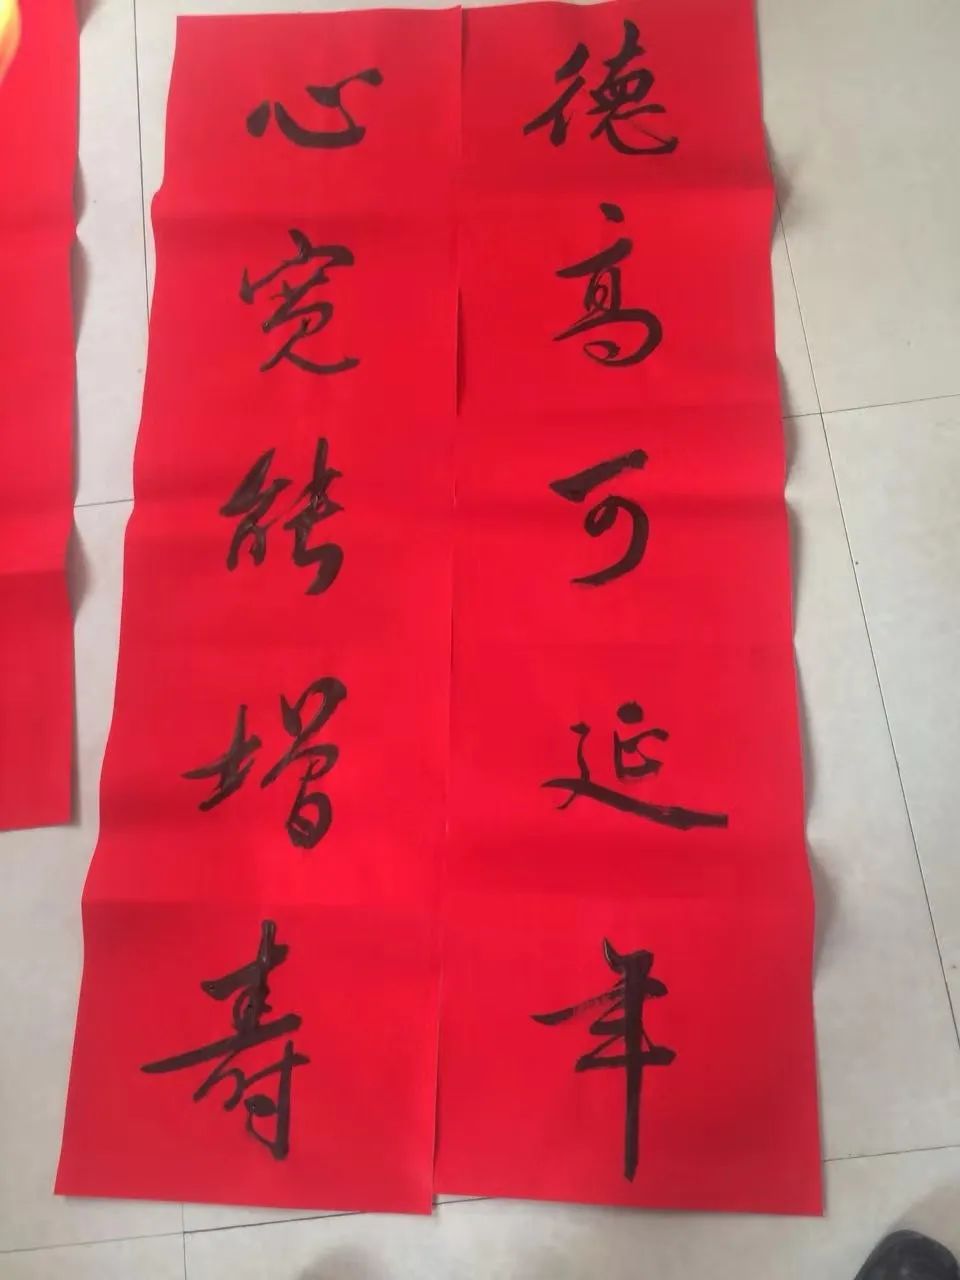 德高可延年
心宽能增寿